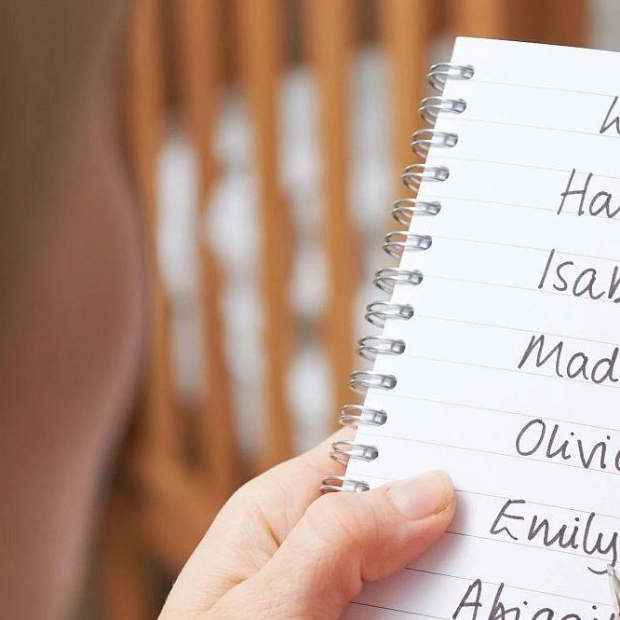 Ha
Isab
Mad
Olivi
Emily
Abigai